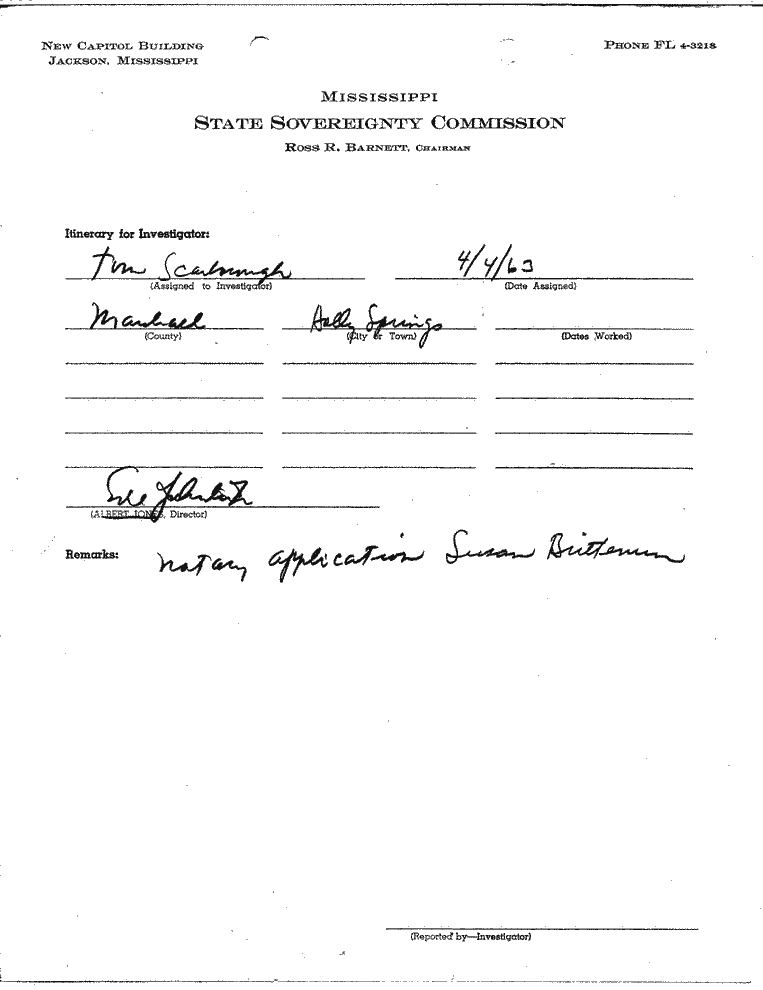 NEW CAPITOL BUILDING
JACKSON, MISSISSIPPI
PHONE FL 4-3218
MISSISSIPPI
STATE SOVEREIGNTY COMMISSION
ROSS R. BARNETT, CHAIRMAN
Itinerary for Investigator:
Tom Scarbrough 4/4/63
(Assigned to Investigator) (Date Assigned)
Marshall Holly Springs
(County) (City or Town) (Dates Worked)
Erle Johnston
(ALBERT JONES, Director)
Remarks: notary application Susan
(Reported by—Investigator)